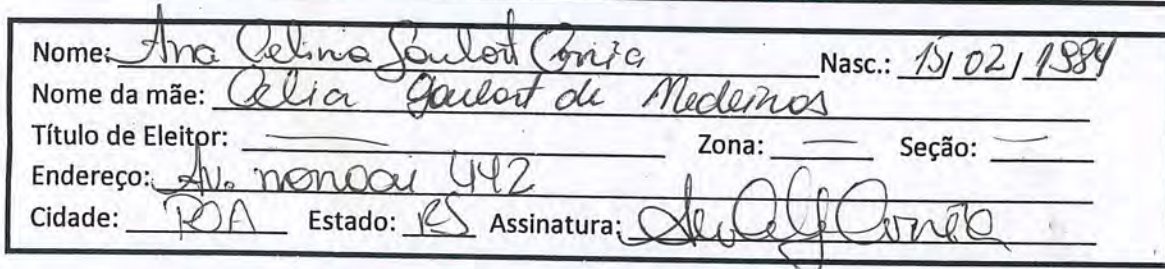 Nome: Ana Celina Goulart Corrêa Nasc.: 15/02/1984
Nome da mãe: Célia Goulart de Medeiros
Título de Eleitor: — Zona: — Seção: —
Endereço: Av. nonoai 442
Cidade: POA Estado: RS Assinatura: